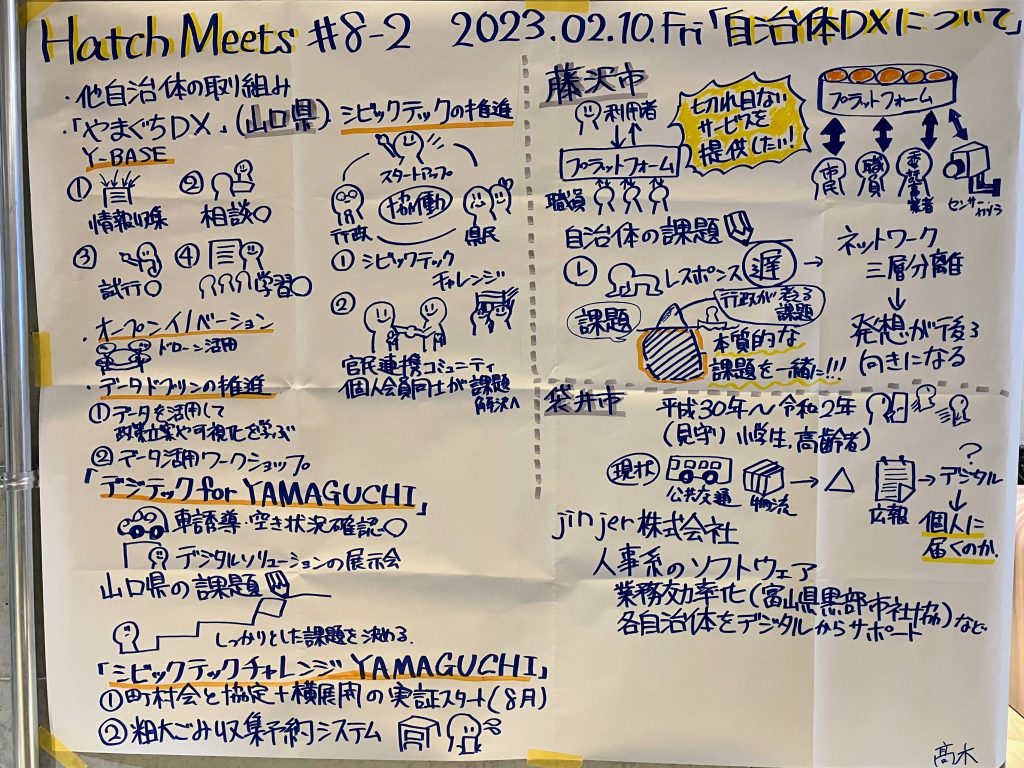 Hatch Meets #8-2 2023.02.10.Fri「自治体DXについて」
・他自治体の取り組み
・「やまぐちDX」(山口県)
Y-BASE
① 情報収集
② 相談〇
③ 試行〇
④ 学習〇
オープンイノベーション
ドローン活用
・データドリブンの推進
①データを活用して
政策立案や可視化を学ぶ
②データ活用ワークショップ
「デジテック for YAMAGUCHI」
車誘導・空き状況確認〇
デジタルソリューションの展示会
山口県の課題
しっかりとした課題を決める
「シビックテックチャレンジ YAMAGUCHI」
①町村会と協定+横展開の実証スタート(8月)
②粗大ごみ収集予約システム
シビックテックの推進
スタートアップ
協働
行政
県民
① シビックテック
チャレンジ
②
官民連携コミュニティ
個人会員同士が課題
解決へ
藤沢市
利用者
プラットフォーム
職員
切れ目ない
サービスを
提供したい!
プラットフォーム
市民
職員
委託業者
センサー
カメラ
自治体の課題
レスポンス 遅
ネットワーク
三層分離
発想が後ろ
向きになる
課題
行政が考える
課題
本質的な
課題を一緒に!!!
袋井市
平成30年〜令和2年
(見守り 小学生,高齢者)
現状
公共交通
物流
△
広報
?
デジタル
個人に
届くのか.
jinjer株式会社
人事系のソフトウェア
業務効率化(富山県黒部市社協)など
各自治体をデジタルからサポート
髙木